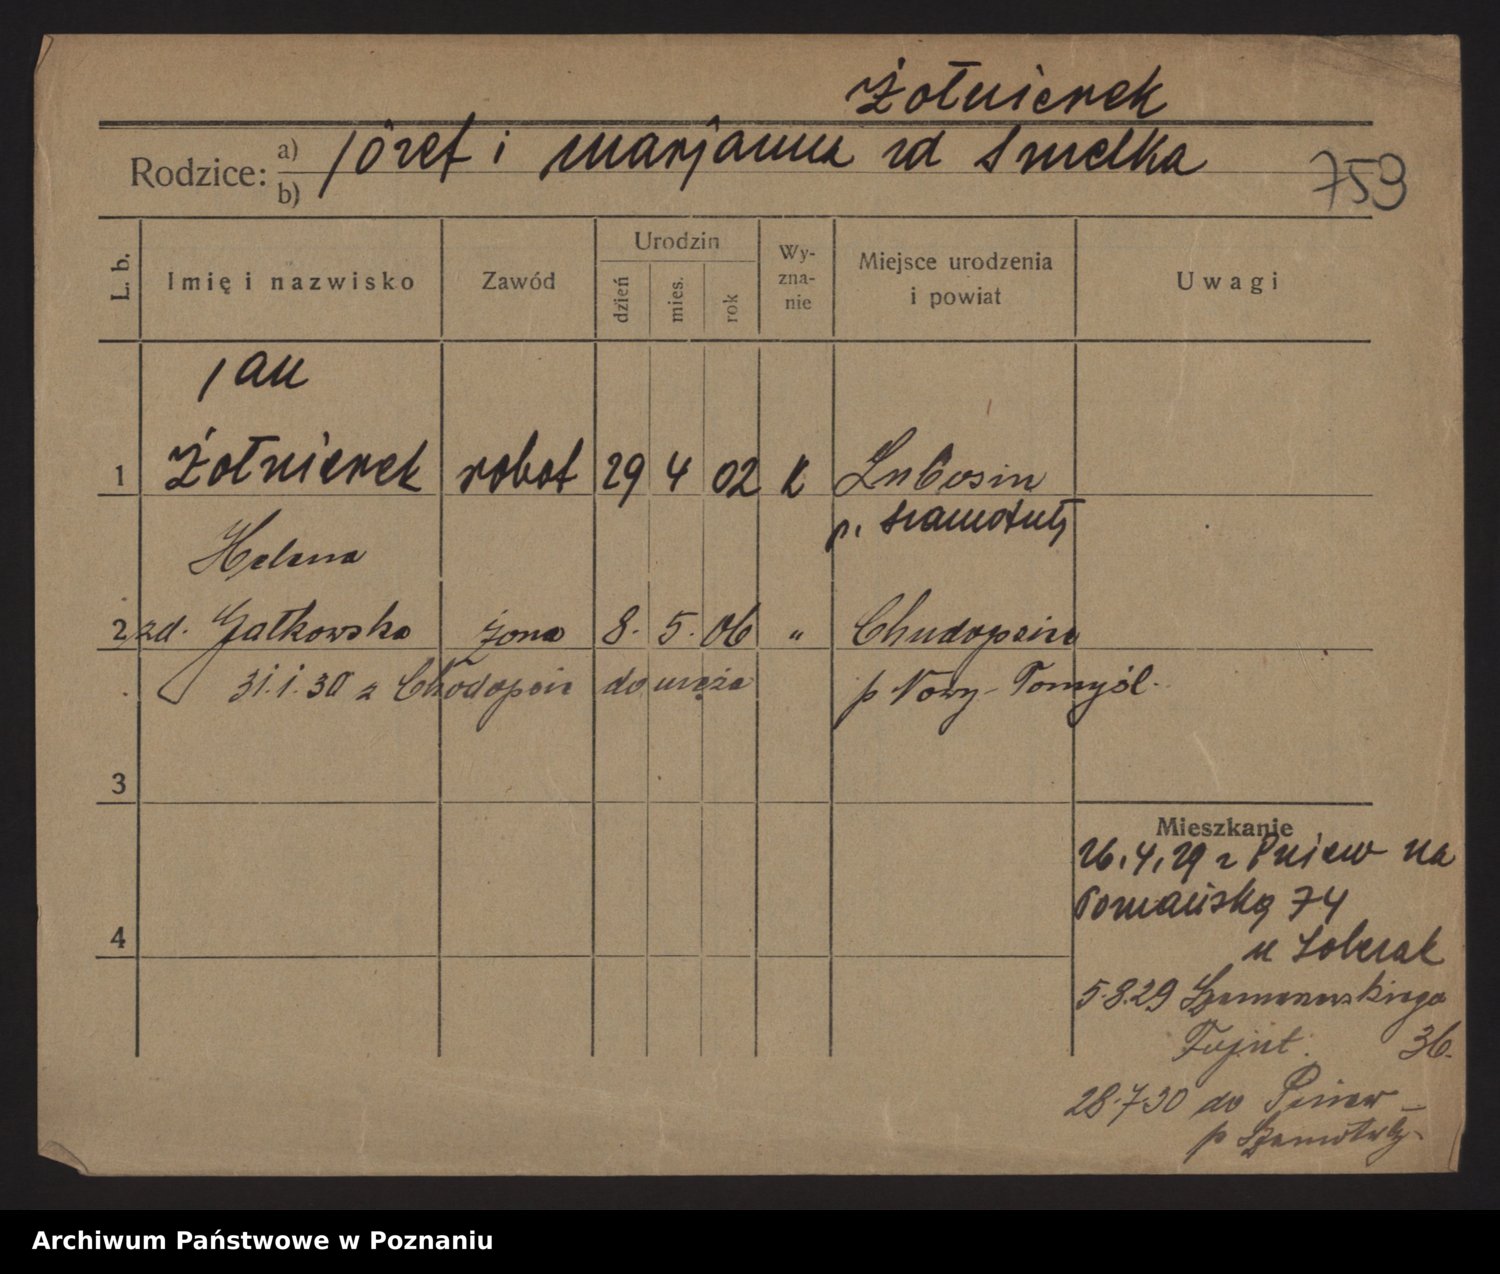 Żołnierek
Rodzice: a) b) Józef i Marjanna zd Smelka
759
L. b. Imię i nazwisko Zawód Urodzin dzień mies. rok Wy-zna-nie Miejsce urodzenia i powiat Uwagi
Jan
1 Żołnierek robot 29 4 02 k Lubosin
p. Szamotuły
Helena
2 zd. Gatkowska żona 8. 5. 06 " Chudopsice
31.1.30 z Chodopsic do męża p Nowy-Tomyśl.
3
Mieszkanie
26.4.29 z Pniew na
Poznańską 74
4
u Soberak
5.8.29 Szamarzewskiego
36.
28.7.30 do Pniew
p Szamotuły
Archiwum Państwowe w Poznaniu